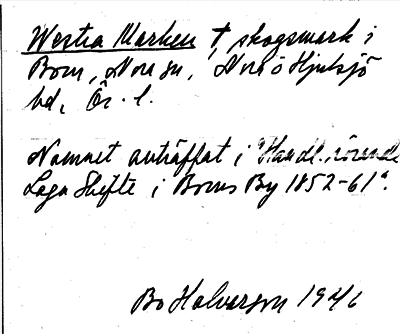 Westra Marken †, skogsmark i
Born, Nora sn, Nora o Hjulsjö
bd, Ör. l.
Namnet anträffat i "Handl. rörande
Laga Skifte i Borns By 1852-61".
Bo Halvarson 1946